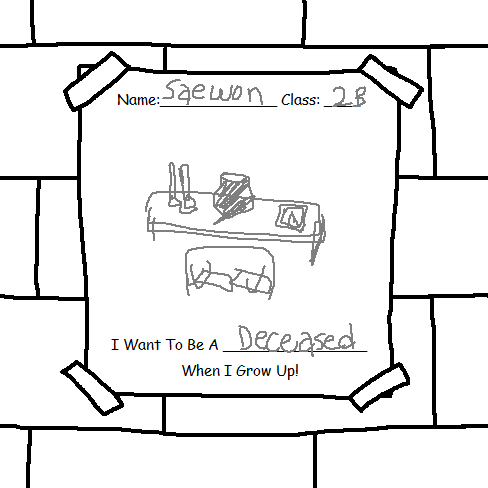 Name: Saewon Class: 2B
I Want To Be A Deceased
When I Grow Up!